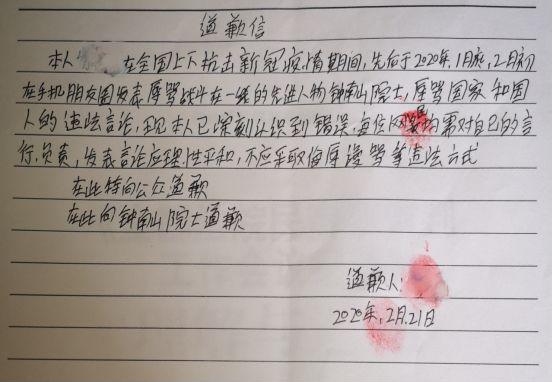 道歉信
本人 在全国上下抗击新冠疫情期间,先后于2020年.1月底,2月初
在手机朋友圈发表辱骂战斗在一线的先进人物钟南山院士,辱骂国家和国
人的违法言论,现本人已深刻认识到错误,每位 均需对自己的言
行.负责,发表言论应理性平和,不应采取侮辱谩骂等违法方式
在此特向公众道歉
在此向钟南山院士道歉
道歉人:
2020年.2月.21日